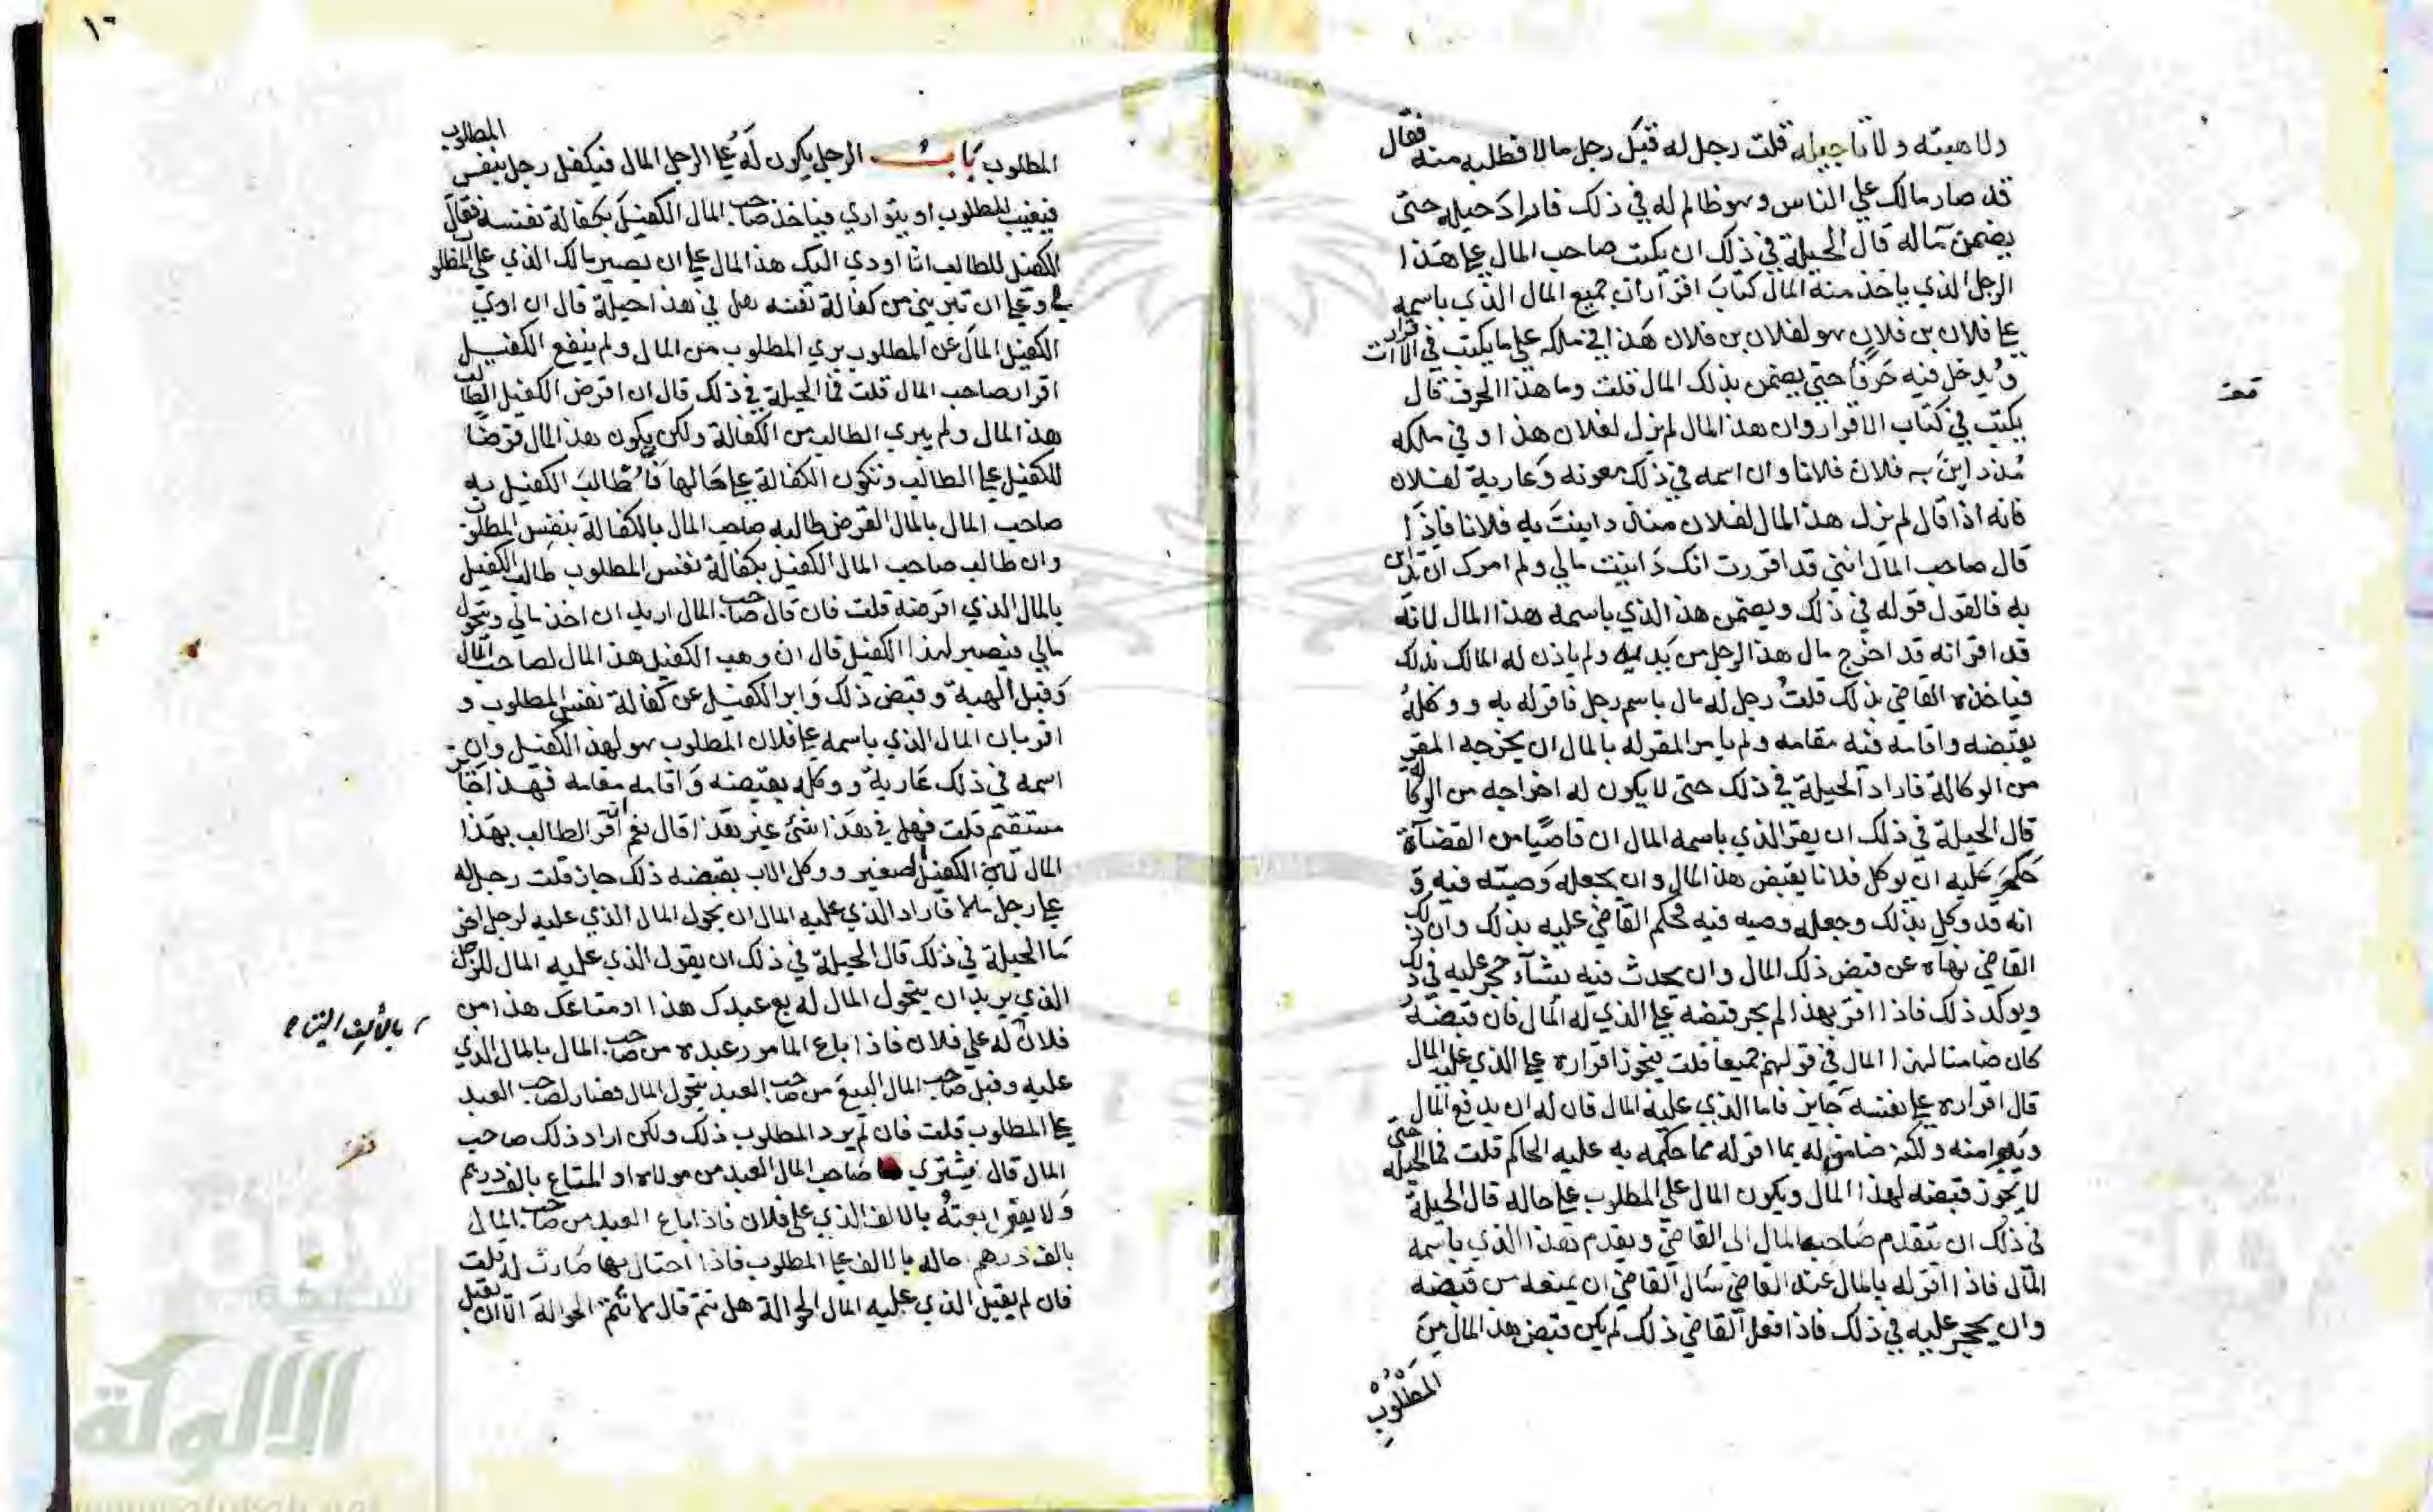 ولا هبته ولا تاجيله قلت رجل له قبل رجل مالا فطلبه منه فقال
قد صار مالك علي الناس وهو ظالم له في ذلك فاراد حيلة حتى
يضمن ماله قال الحيلة في ذلك ان يكتب صاحب المال علي هذا
الرجل الذي ياخذ منه المال كتاب اقرار ان جميع المال الذي باسمه
علي فلان بن فلان هو لفلان بن فلان هذا في ملكه علي ما يكتب في الاقرارات
ويدخل فيه حرفا حتى يضمن بذلك المال قلت وما هذا الحرف قال
يكتب في كتاب الاقرار وان هذا المال لم يزل لفلان هذا وفي ملكه
منذ داين به فلان فلانا وان اسمه في ذلك معونة وعارية لفلان
فانه اذا قال لم يزل هذا المال لفلان منذ داينت به فلانا فاذا
قال صاحب المال انني قد اقررت انك داينت مالي ولم امرك ان تداين
به فالقول قوله في ذلك ويضمن هذا الذي باسمه هذا المال لانه
قد اقر انه قد اخرج مال هذا الرجل من يديه ولم ياذن له المالك بذلك
فياخذه القاضي بذلك قلت رجل له مال باسم رجل فاقر له به ووكله
بقبضه واقامه فيه مقامه ولم يامر المقر له بالمال ان يخرجه المقر
من الوكالة فاراد الحيلة في ذلك حتى لا يكون له اخراجه من الوكالة
قال الحيلة في ذلك ان يقر الذي باسمه المال ان قاضيا من القضاة
حكم عليه ان يوكل فلانا بقبض هذا المال وان يجعله وصيته فيه و
انه قد وكل بذلك وجعله وصيه فيه فحكم القاضي عليه بذلك وان ذلك
القاضي نهاه عن قبض ذلك المال وان يحدث فيه شيئا وحجر عليه في ذلك
ويوكد ذلك فاذا اقر بهذا لم يجز قبضه علي الذي له المال فان قبضه
كان ضامنا لهذا المال في قولهم جميعا قلت يجوز اقراره علي الذي عليه المال
قال اقراره علي نفسه جايز فاما الذي عليه المال فان له ان يدفع المال
ويبرا منه ولكنه ضامن له بما اقر له مما حكمه به عليه الحاكم قلت فما الحيلة حتى
لا يجوز قبضه لهذا المال ويكون المال علي المطلوب علي حاله قال الحيلة
في ذلك ان يتقدم صاحب المال الي القاضي ويقدم هذا الذي باسمه
المال فاذا اقر له بالمال عند القاضي سال القاضي ان يمنعه من قبضه
وان يحجر عليه في ذلك فاذا فعل القاضي ذلك لم يكن قبض هذا المال من
المطلوب
١٦
المطلوب باب الرجل يكون له علي الرجل المال فيكفل رجل بنفس المطلوب
فيغيب المطلوب او يتواري فياخذ صاحب المال الكفيل بكفالة نفسه فقال
الكفيل للطالب انا اودي اليك هذا المال علي ان يصير مالك الذي علي المطلوب
لي وعلي ان تبريني من كفالة نفسه هل في هذا حيلة قال ان ادي
الكفيل المال عن المطلوب بري المطلوب من المال ولم ينفع الكفيل
اقرار صاحب المال قلت فما الحيلة في ذلك قال ان اقرض الكفيل الطالب
هذا المال ولم يبري الطالب من الكفالة ولكن يكون هذا المال قرضا
للكفيل علي الطالب وتكون الكفالة علي حالها فان طالب الكفيل به
صاحب المال بالمال القرض طالبه صاحب المال بالكفالة بنفس المطلوب
وان طالب صاحب المال الكفيل بكفالة نفس المطلوب طالب الكفيل
بالمال الذي اقرضه قلت فان قال صاحب المال اريد ان اخذ مالي ويتحول
مالي فيصير لهذا الكفيل قال ان وهب الكفيل هذا المال لصاحب المال
وقبل الهبة وقبض ذلك وابرا الكفيل عن كفالة نفس المطلوب و
اقر بان المال الذي باسمه علي فلان المطلوب هو لهذا الكفيل وان
اسمه في ذلك عارية ووكله بقبضه واقامه مقامه فهذا جايز
مستقيم قلت فهل في هذا شئ غير هذا قال نعم ان اقر الطالب بهذا
المال لابن الكفيل الصغير ووكل الاب بقبضه ذلك جاز قلت رجل له
علي رجل مالا فاراد الذي عليه المال ان يحول المال الذي عليه لرجل اخر
ما الحيلة في ذلك قال الحيلة في ذلك ان يقول الذي عليه المال للرجل
الذي يريد ان يتحول المال له بع عبدك هذا او متاعك هذا من
فلان له علي فلان فاذا باع المامور عبده من صاحب المال بالمال الذي
عليه وقبل صاحب المال البيع من صاحب العبد يتحول المال فصار لصاحب العبد
علي المطلوب قلت فان لم يرد المطلوب ذلك ولكن اراد ذلك صاحب
المال قال يشتري صاحب المال العبد من مولاه او المتاع بالف درهم
ولا يقول بعته بالالف الذي علي فلان فاذا باع العبد من صاحب المال
بالف درهم احاله بالالف علي المطلوب فاذا احتال بها صارت له قلت
فان لم يقبل الذي عليه المال الحوالة هل تتم قال لا تتم الحوالة الا ان يقبل
بالألف التي
شبكة
الألوكة